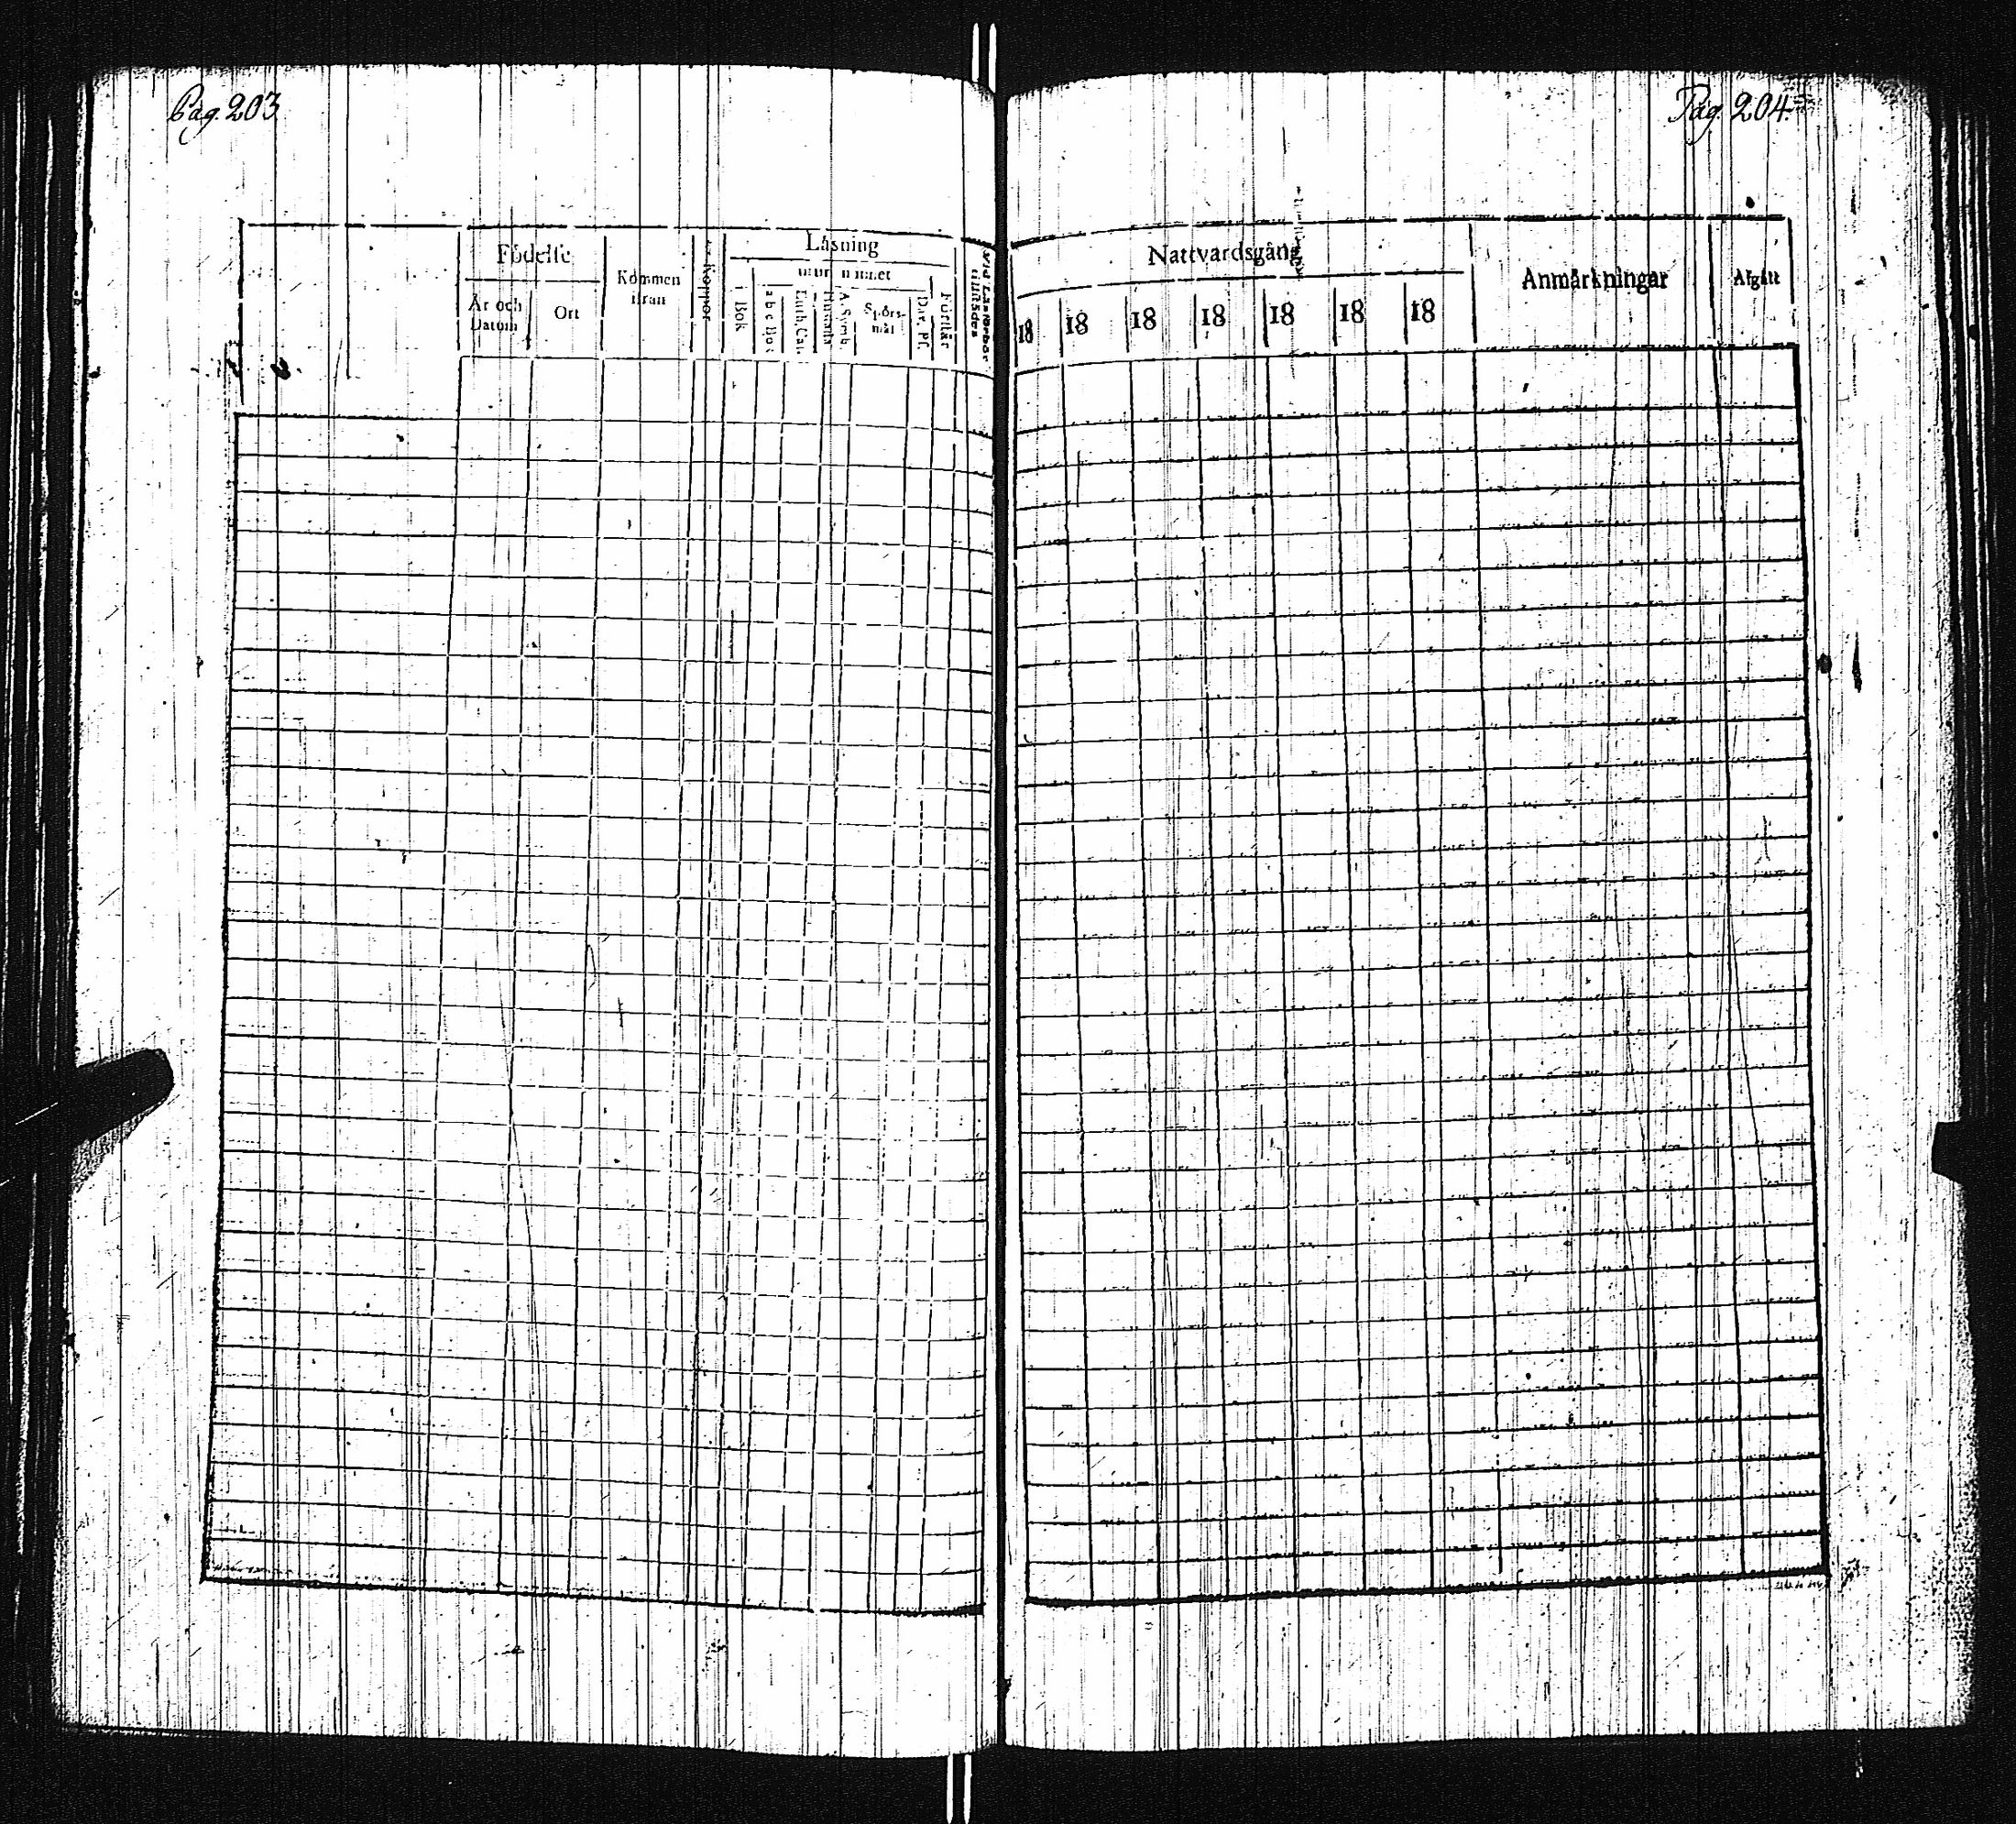 Pag. 203
Födelse
År och Datum
Ort
Kommen ifrån
Koppor
Läsning
i Bok
a b c Bok
Luth. Cat.
A. Symb.
Spörsmål
Dav. Ps.
Förklar
Pag. 204
Nattvardsgång
18 18 18 18 18 18 18
Anmärkningar
Afgått